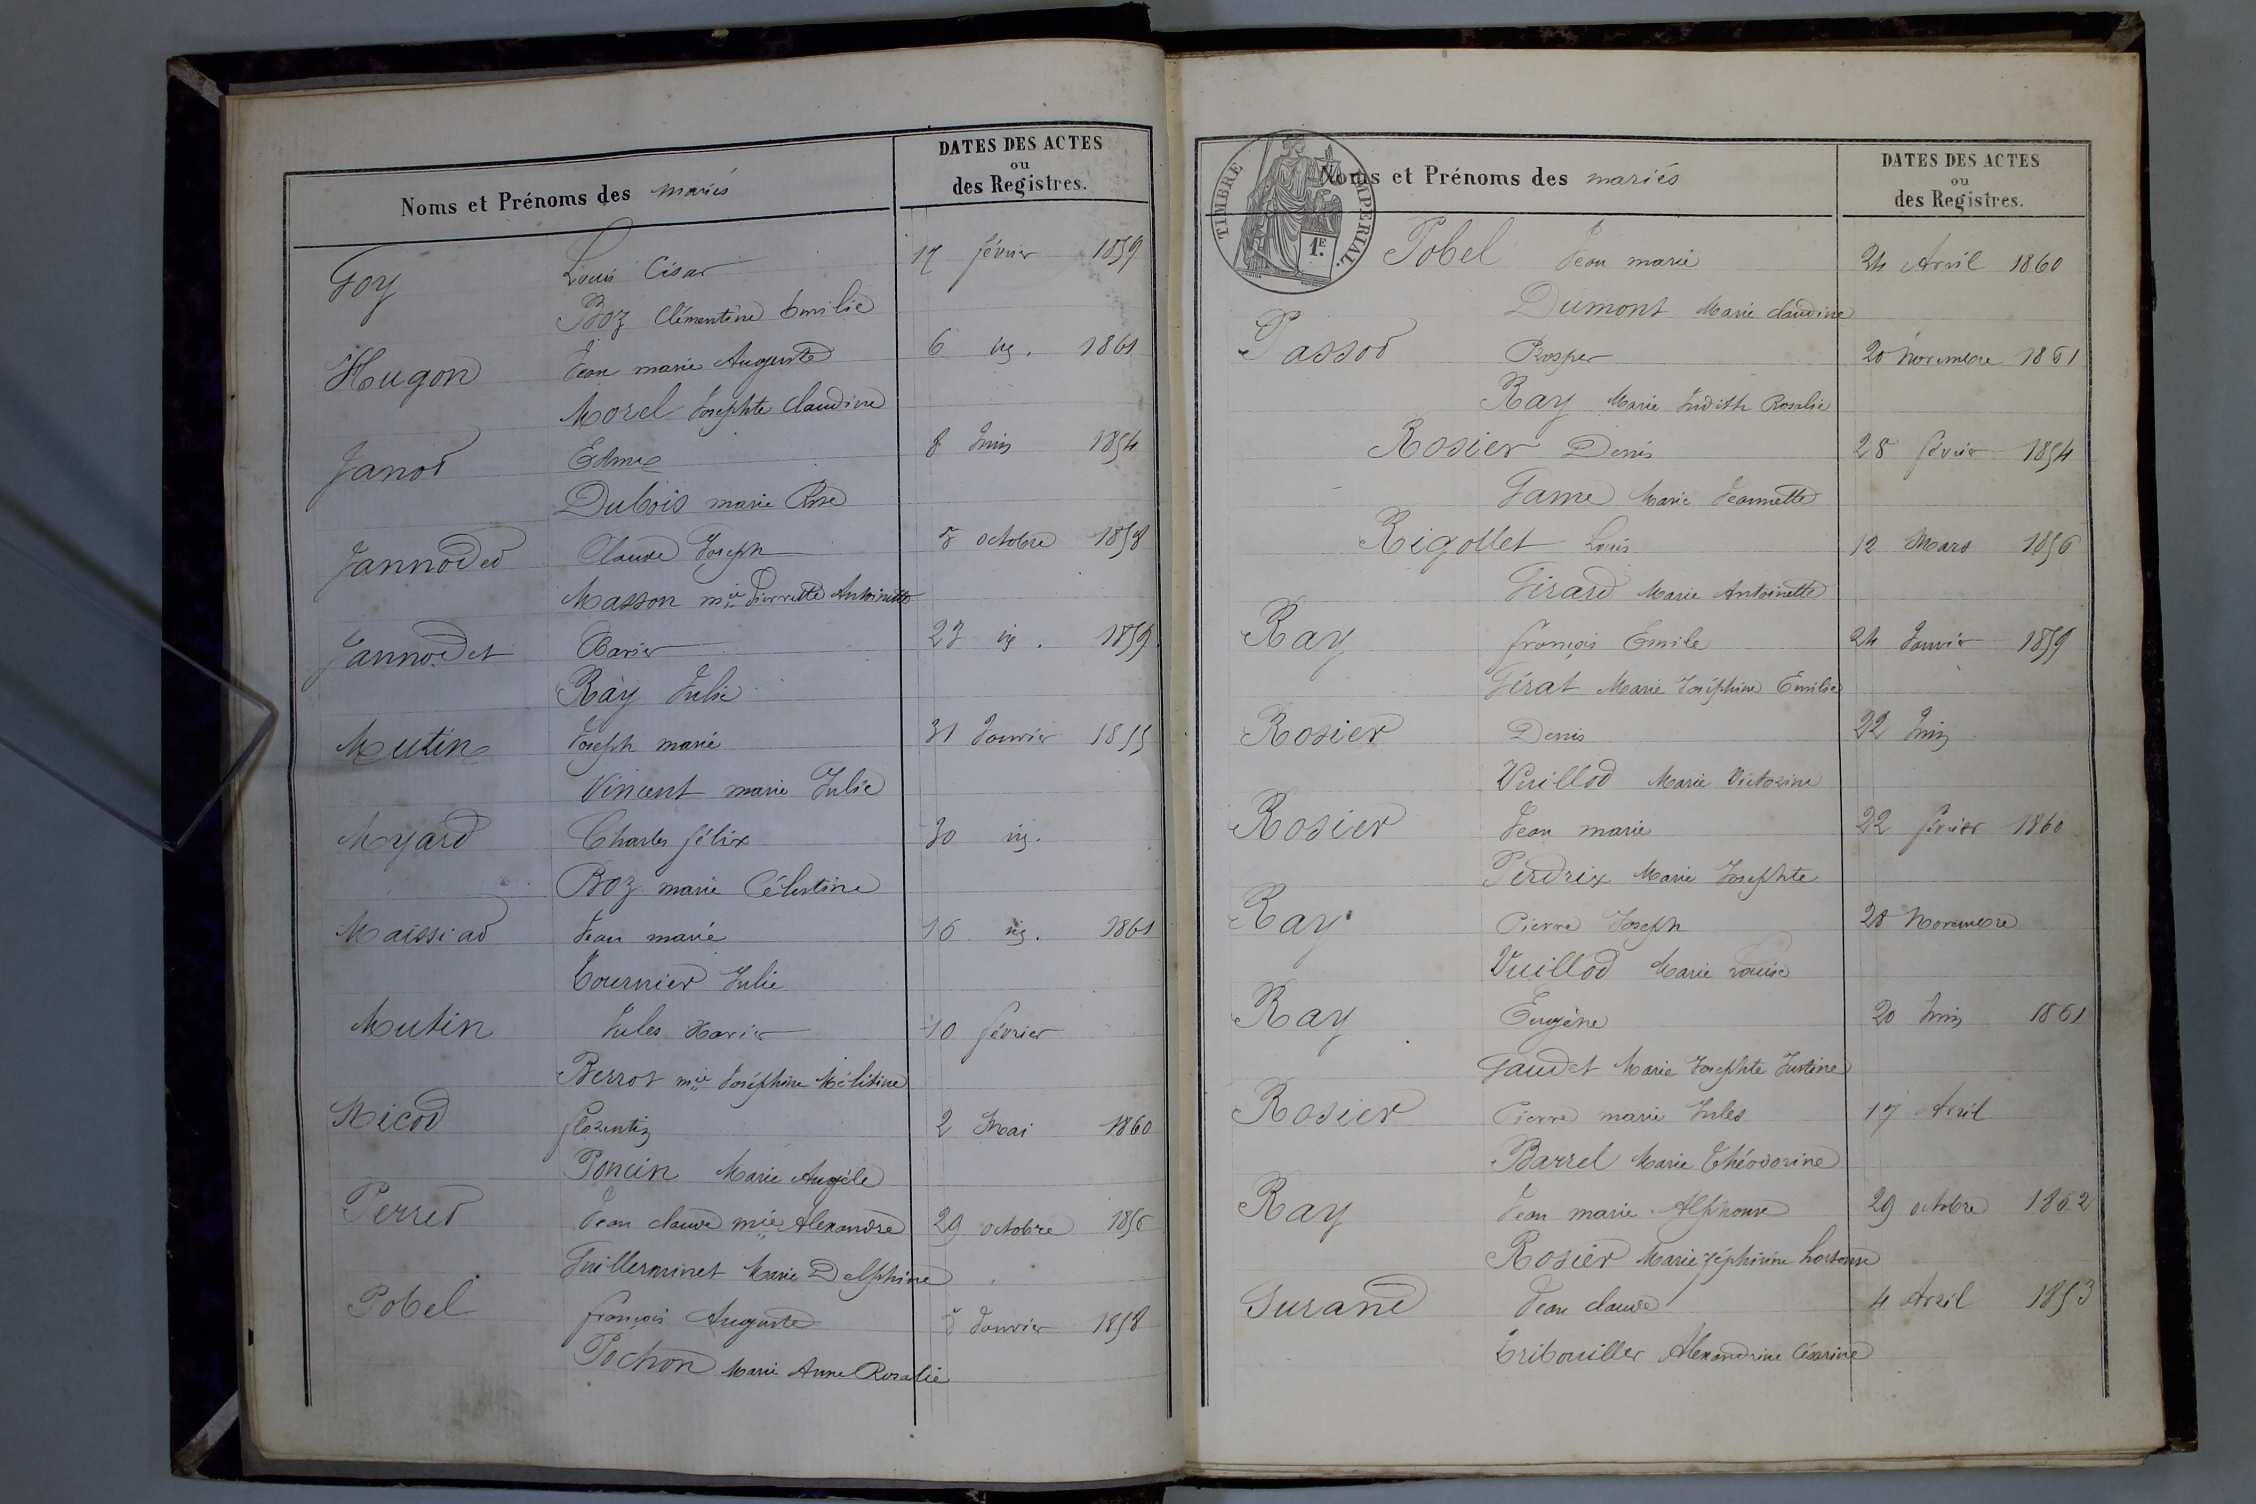 Noms et Prénoms des mariés
DATES DES ACTES
ou
des Registres.
Goy Louis César 17 février 1859
Boz Clémentine Emilie
Hugon Jean marie Auguste 6 ig. 1861
Morel Josephte Claudine
Janod Edme 8 Juin 1854
Dubois marie Rose
Jannoded Claude Joseph 8 octobre 1858
Masson mie Pierrette Antoinette
Jannodet Xavier 27 ig. 1859
Ray Julie
Mutin Joseph marie 31 Janvier 1855
Vincent marie Julie
Myard Charles félix 30 ig.
Boz marie Célestine
Maissiad Jean marie 16 ig. 1861
Tournier Julie
Mutin Jules Xavier 10 février
Berrot mie Joséphine Mélitine
Nicod florentin 2 Mai 1860
Poncin Marie Angèle
Perred Jean claude mie Alexandre 29 octobre 1856
Guillerminet Marie Delphine
Pobel françois Auguste Janvier 1858
Pochon Marie Anne Rosalie
TIMBRE IMPERIAL.
1E.
Noms et Prénoms des mariés
DATES DES ACTES
ou
des Registres.
Pobel Jean marie 24 Avril 1860
Dumont Marie claudine
Passod Prosper 20 Novembre 1861
Ray Marie Judith Rosalie
Rosier Denis 28 février 1854
Game Marie Jeannette
Rigollet Louis 12 Mars 1856
Girard Marie Antoinette
Ray françois Emile 24 Janvier 1859
Gérat Marie Joséphine Emilie
Rosier Denis 22 Juin
Vuillod Marie Victorine
Rosier Jean marie 22 février 1860
Perdrix Marie Josephte
Ray Pierre Joseph 28 Novembre
Vuillod Marie Louise
Ray Eugène 20 Juin 1861
Gaudet Marie Josephte Justine
Rosier Pierre marie Jules 17 Avril
Barrel Marie Théodorine
Ray Jean marie Alphonse 29 octobre 1862
Rosier Marie Zéphirine hortense
Surand Jean claude 4 Avril 1853
Tribouiller Alexandrine Césarine